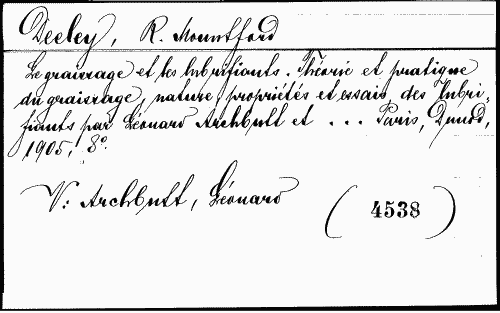 Deeley, R. Mountford
Le graissage et les lubrifiants. Théorie et pratique
du graissage, nature, propriétés et essais des lubri-
fiants par Léonard Archbutt et ... Paris, Dunod,
1905, 8º.
V: Archbutt, Léonard
(4538)